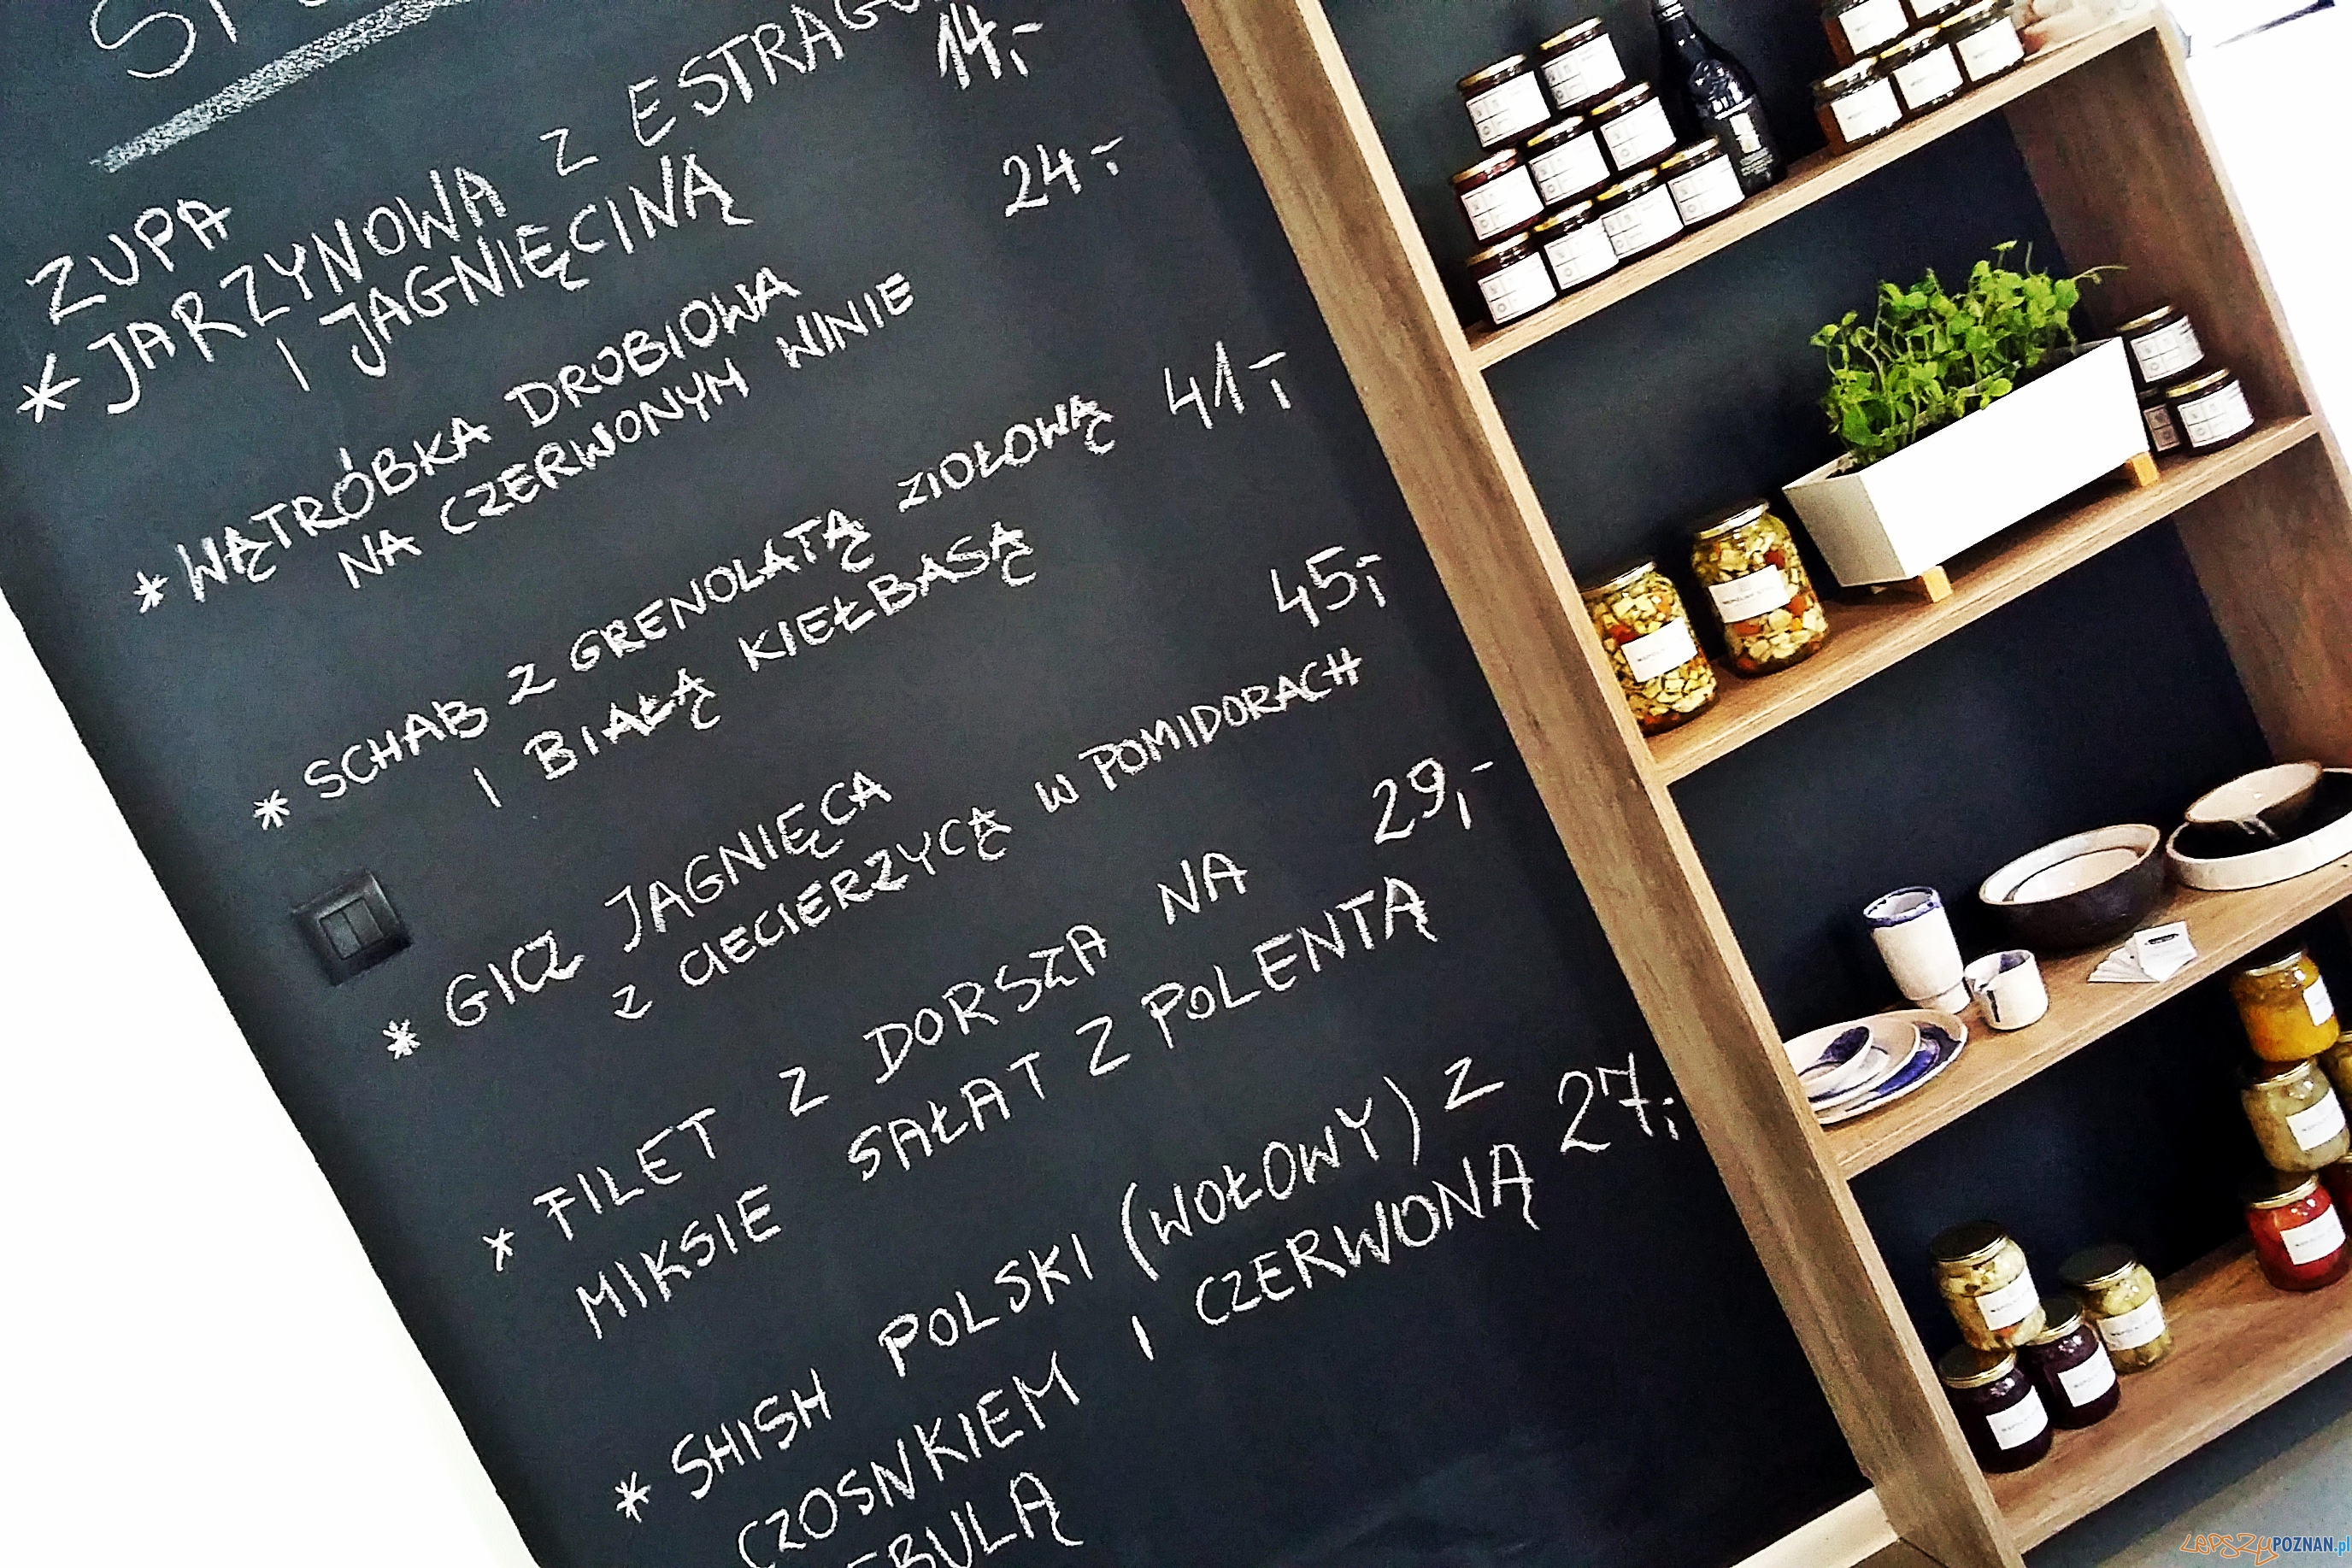 ZUPA
* JARZYNOWA Z ESTRAGO
I JAGNIĘCINĄ 14,-
* WĄTRÓBKA DROBIOWA 24,-
NA CZERWONYM WINIE
* SCHAB Z GRENOLATĄ ZIOŁOWĄ 41,-
I BIAŁĄ KIEŁBASĄ
* GICZ JAGNIĘCA 45,-
Z CIECIERZYCĄ W POMIDORACH
* FILET Z DORSZA NA 29,-
MIKSIE SAŁAT Z POLENTĄ
* SHISH POLSKI (WOŁOWY) Z 27,-
CZOSNKIEM I CZERWONĄ
EBULĄ
LEPSZYPOZNAN.pl